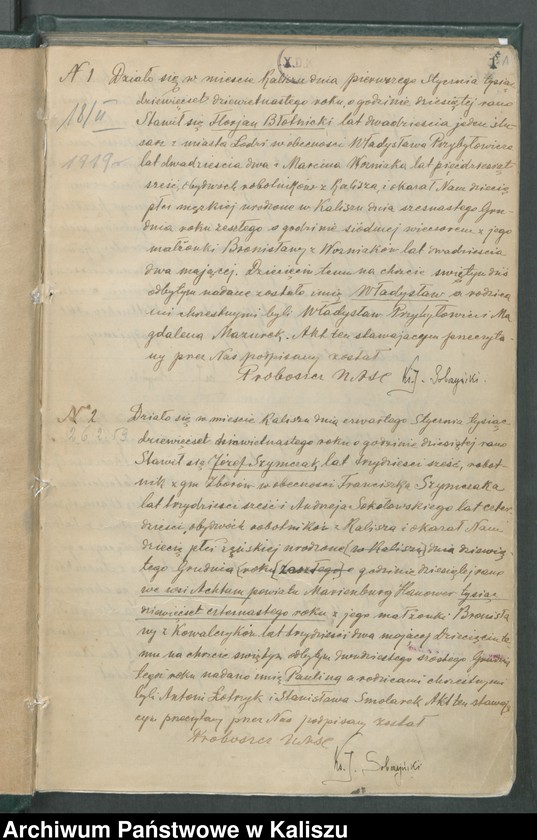 1
N 1 Działo się w mieście Kaliszu dnia pierwszego Stycznia tysiąc
dziewięćset dziewietnastego roku, o godzinie dziesiątej rano
18/II Stawił się Florjan Błotnicki lat dwadzieścia jeden, ślu-
sarz z miasta Łodzi w obecności Władysława Przybyłowicza
1919 r lat dwadzieścia dwa i Marcina Woźniaka lat pięćdziesiąt
sześć, obydwóch robotników z Kalisza, i okazał Nam dziecię
płci męzkiej urodzone w Kaliszu dnia szesnastego Gru-
dnia roku zeszłego o godzinie siódmej wieczorem z jego
małżonki Bronisławy z Woźniaków lat dwadzieścia
dwa mającej. Dziecięciu temu na chrzcie świętym dziś
odbytym nadane zostało imię Władysław a rodzica
mi chrzestnymi byli Władysław Przybyłowicz i Ma
gdalena Mazurek. Akt ten stawającym przeczyta-
ny przez Nas podpisany został
Proboszcz UASC Ks. J. Sobczyński.
N 2 Działo się w mieście Kaliszu dnia czwartego Stycznia tysiąc
dziewięćset dziewietnastego roku o godzinie dziesiątej rano
Stawił się Józef Szymczak, lat trzydzieści sześć, robot-
nik z gm. Zborów w obecności Franciszka Szymczaka
lat trzydzieści sześć i Andrzeja Sokołowskiego lat czter
dzieści, obydwóch robotników z Kalisza i okazał Nam
dziecię płci żeńskiej urodzone (w Kaliszu) dnia dziewią-
tego Grudnia (roku zeszłego) o godzinie dziesiątej rano
we wsi Achtum powiatu Marienburg Hanower tysiąc
dziewięćset czternastego roku z jego małżonki Bronisła
wy z Kowalczyków lat trzydzieści dwa mającej Dziecięciu te
mu na chrzcie świętym odbytym dwudziestego szóstego Grudnia
tegoż roku nadano imię Paulina a rodzicami chrzestnymi
byli Antoni i Stanisława Smolarek Akt ten stawają-
cym przeczytany przez Nas podpisany został
Proboszcz UASC
Ks. J. Sobczyński
Archiwum Państwowe w Kaliszu